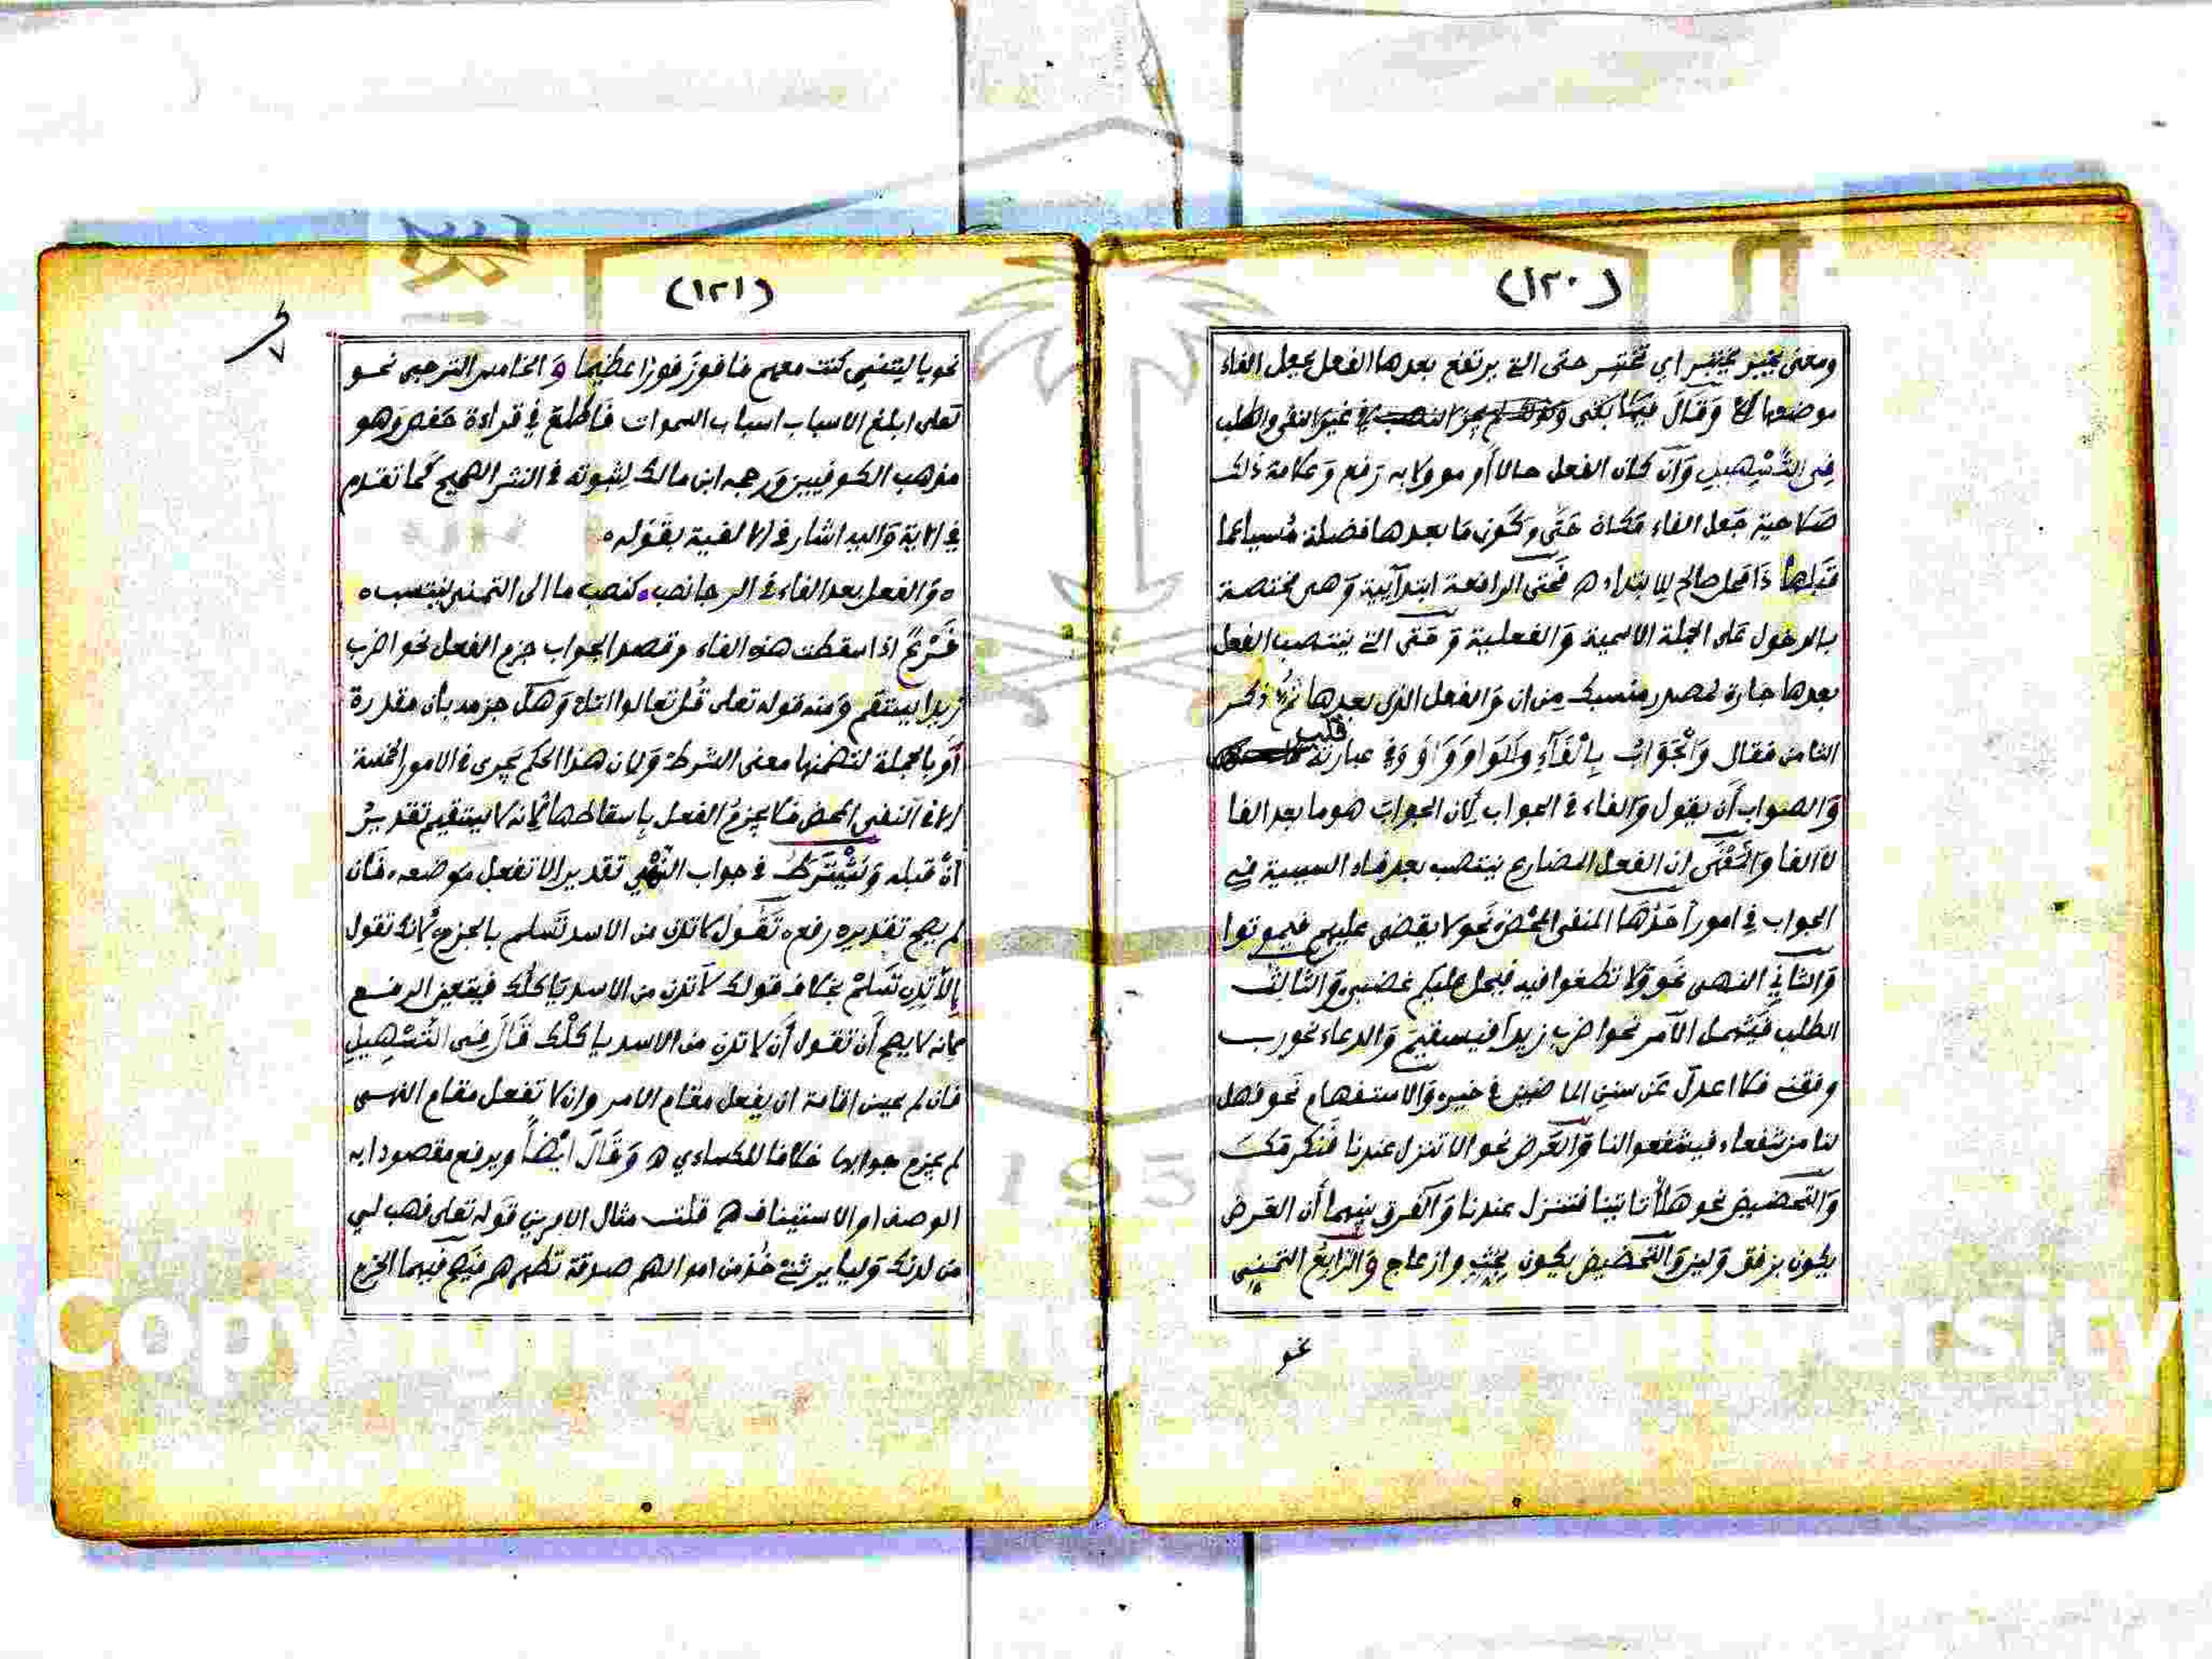 (١٢٠)
ومعنى يختبر اي تختبر حتى التي يرتفع بعدها الفعل بجعل الفاء
موضعها وقال فيها في غير النفي والطلب
في التسهيل وان كان الفعل حالا أو موولا به رفع وعلامة ذلك
صلاحية جعل الفاء مكان حتى وكون ما بعدها فضلة مسببا عما
قبلها ذا محل صالح للابتداء ه فحتى الرافعة ابتدآئية وهى مختصة
بالدخول على الجملة الاسمية والفعلية وحتى التي ينتصب الفعل
بعدها جارة لمصدر منسبك من ان والفعل الذي بعدها ثم ذكر
الثامن فقال والجواب بالفآء والواو وأو وفي عبارته قلب
والصواب أن يقول والفاء في الجواب لان الجواب هو ما بعد الفا
لا الفا والمعنى ان الفعل المضارع ينتصب بعد فاء السببية في
الجواب في امور أحدها النفى المحض نحو لا يقضى عليهم فيموتوا
والثاني النهى نحو ولا تطغوا فيه فيحل عليكم غضبى والثالث
الطلب فيشمل الآمر نحو اضرب زيدا فيستقيم والدعاء نحو رب
وفقنى فلا اعدل عن سنن الماضين في خيره والاستفهام نحو فهل
لنا من شفعاء فيشفعوا لنا والعرض نحو الا تنزل عندنا فنكرمك
والتحضيض نحو هلا أتاتينا فتنزل عندنا والفرق بينهما أن العرض
يكون برفق ولين والتحضيض يكون بحث وازعاج والرابع التمنى
نحو
(١٢١)
نحو يا ليتني كنت معهم فافوز فوزا عظيما و الخامس الترجى نحو
لعلى ابلغ الاسباب اسباب السموات فاطلع في قراءة حفص وهو
مذهب الكوفيين ورجحه ابن مالك لثبوته في النثر الصحيح كما تقدم
في الاية واليه اشار في الالفية بقوله ه
ه والفعل بعد الفاء في الرجا نصب . كنصب ما الى التمنى ينتسب ه
فرع اذا اسقطت هذه الفاء وقصد الجواب جزم الفعل نحو اضرب
زيدا يستقم ومنه قوله تعلى قل تعالوا اتل وهل جزمه بأن مقدرة
أو بالجملة لتضمنها معنى الشرط ولان هذا الحكم يجرى في الامور الخمسة
الا في النفى المحض فلا يجزم الفعل بإسقاطها لانه لا يستقيم تقدير
ان قبله ويشترط في جواب النهي تقدير الا تفعل موضعه فان
لم يصح تقديره رفعه تقول لا تدن من الاسد تسلم بالجزم لانك تقول
إلا تدن تسلم بخلاف قولك لا تدن من الاسد يا كلك فيتعين الرفع
لانه لا يصح أن تقول أن لا تدن من الاسد يا كلك قال في التسهيل
فان لم يحسن اقامة ان يفعل مقام الامر وان لا تفعل مقام النهى
لم يجزم جوابها خلافا للكساءي ه وقال ايضا ويرفع مقصودا به
الوصف او الاستيناف ه قلت مثال الاولين قوله تعلى فهب لي
من لدنك وليا يرثني خذ من اموالهم صدقة تطهرهم فيصح فيهما الجزم